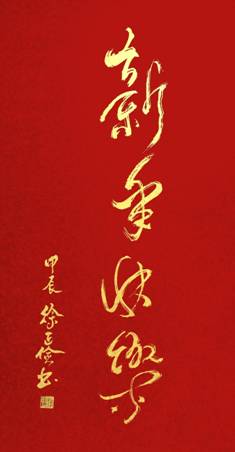 新年快樂
甲辰 徐正儉书